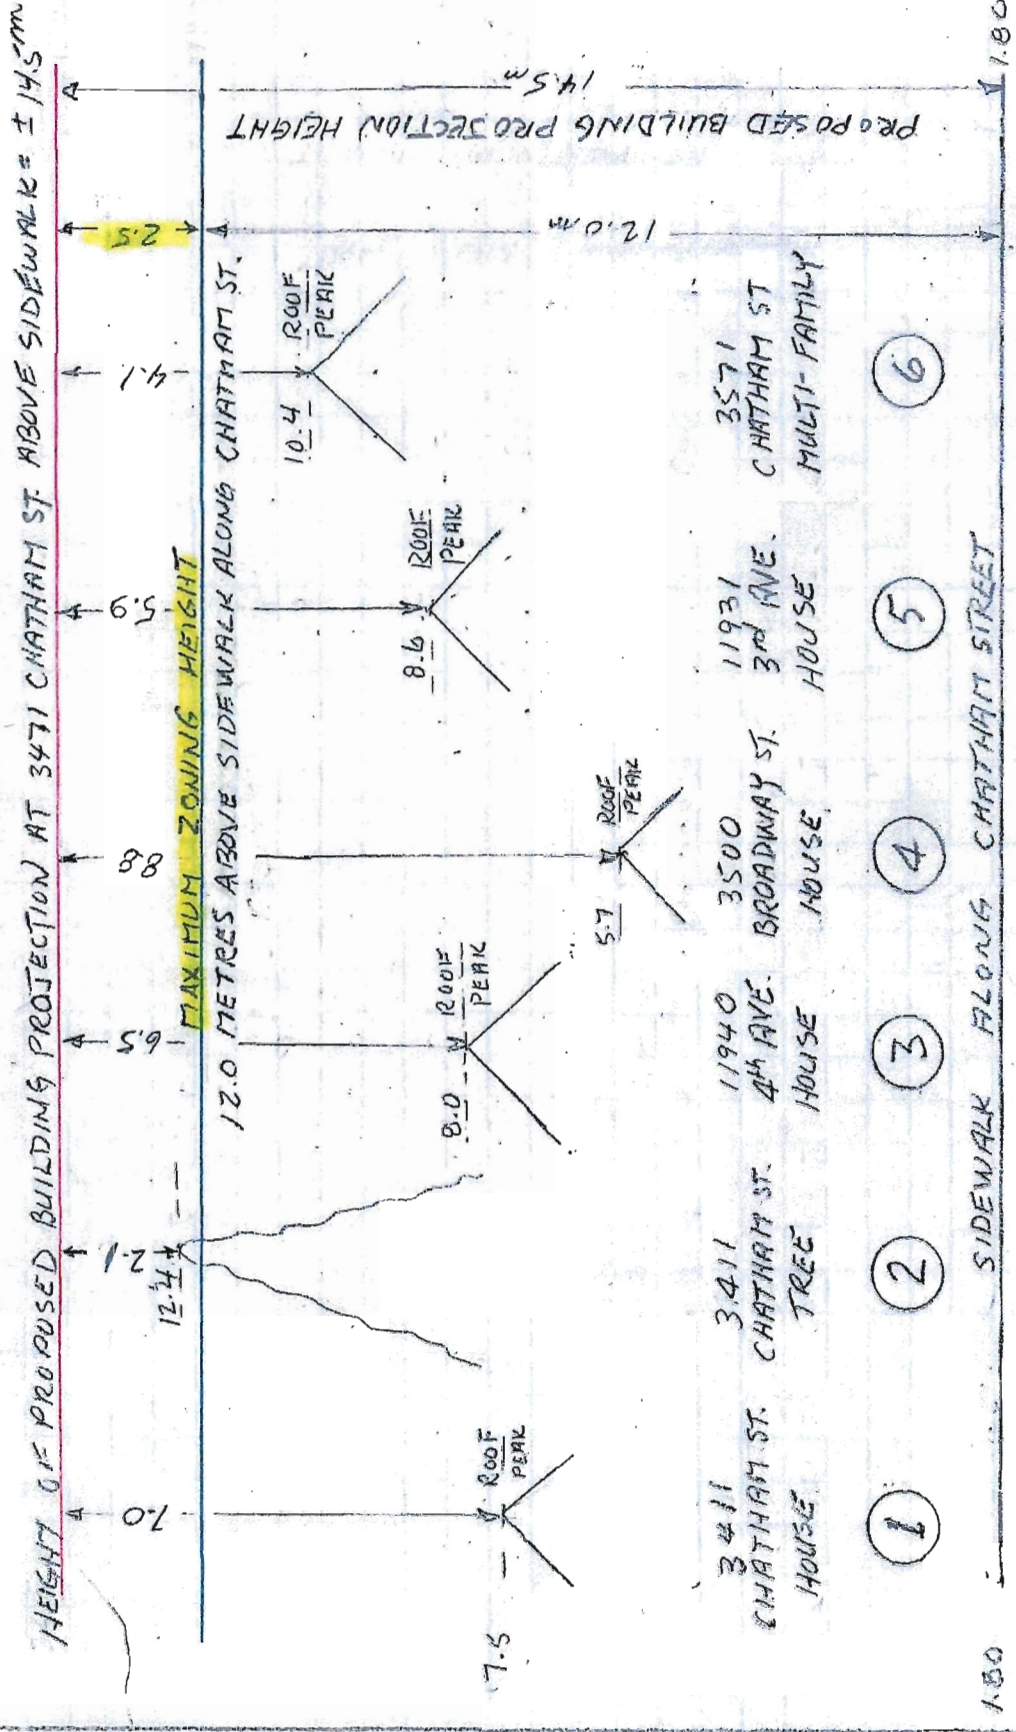 HEIGHT OF PROPOSED BUILDING PROJECTION AT 3471 CHATHAM ST. ABOVE SIDEWALK = ± 14.5 m
7.0
2.1
6.5
8.8
5.9
4.1
2.5
12.4
MAXIMUM ZONING HEIGHT
12.0 METRES ABOVE SIDEWALK ALONG CHATHAM ST.
7.5
ROOF
PEAK
8.0
ROOF
PEAK
5.7
ROOF
PEAK
8.6
ROOF
PEAK
10.4
ROOF
PEAK
12.0 m
PROPOSED BUILDING PROJECTION HEIGHT
14.5 m
3411
CHATHAM ST.
HOUSE
1
3411
CHATHAM ST.
TREE
2
11940
4th AVE.
HOUSE
3
3500
BROADWAY ST.
HOUSE
4
11931
3rd AVE.
HOUSE
5
3571
CHATHAM ST
MULTI-FAMILY
6
SIDEWALK ALONG CHATHAM STREET
1.80
1.80